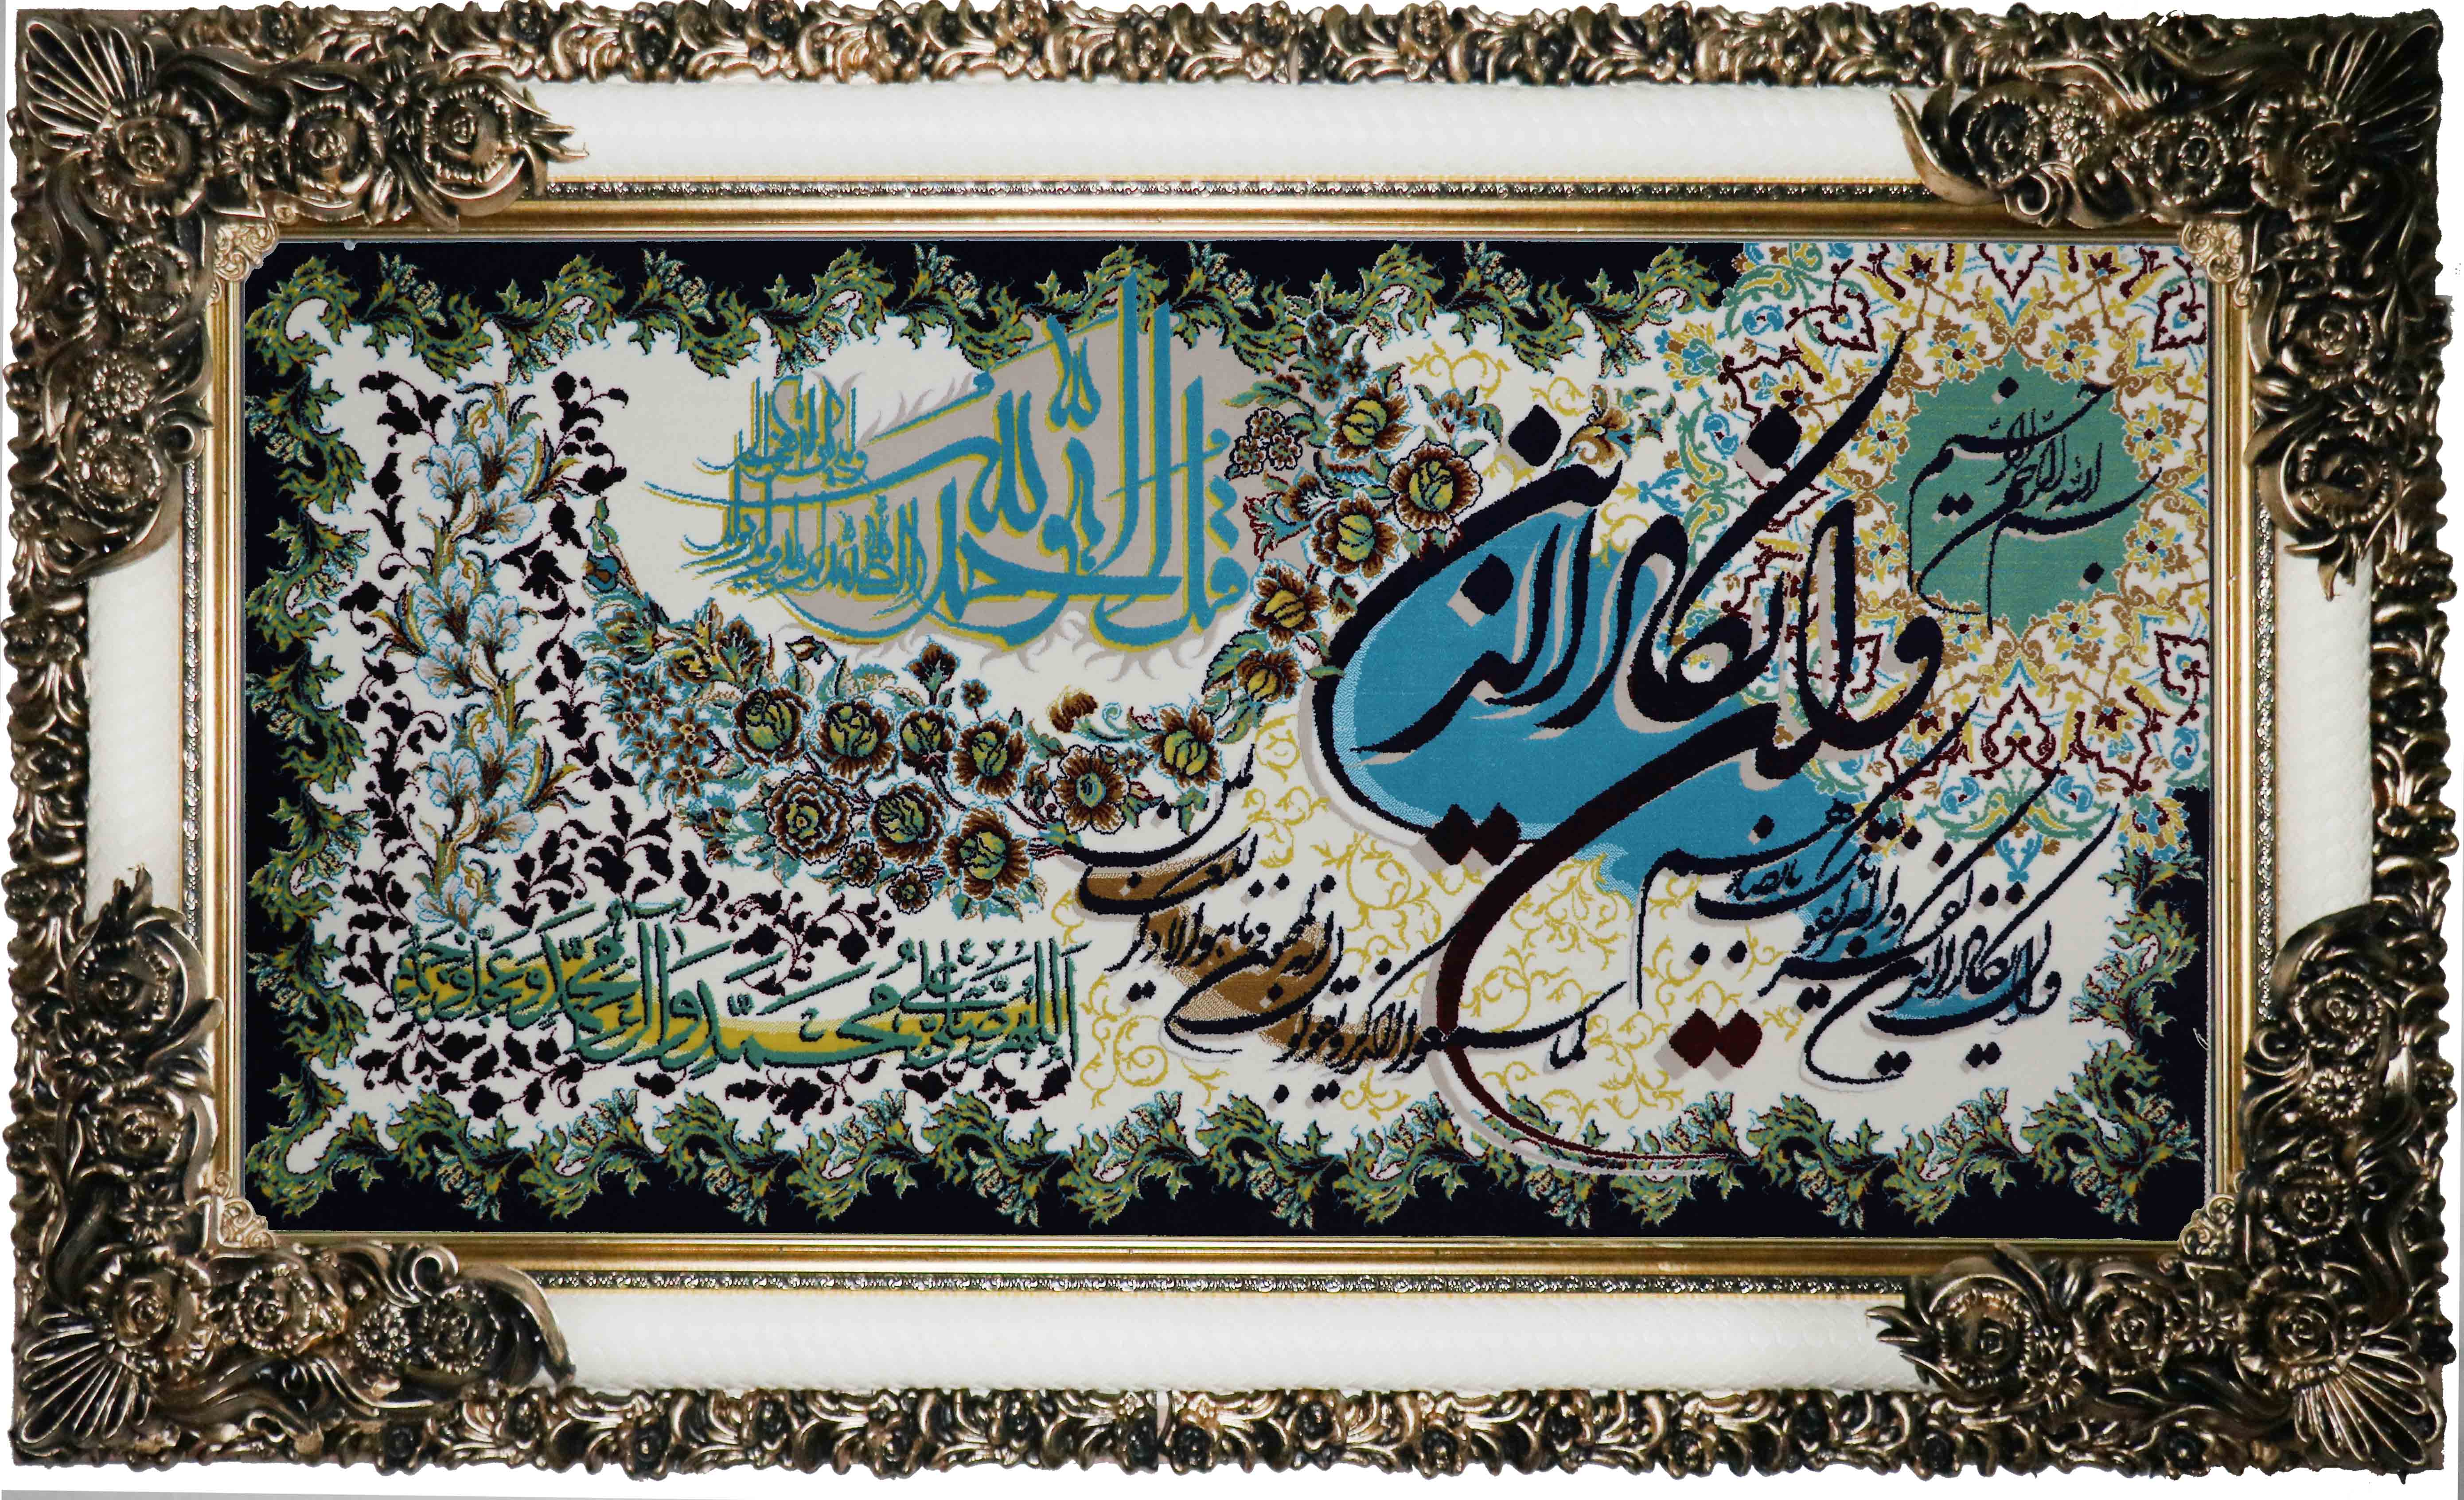 بسم الله الرحمن الرحیم
وان یکاد الذین
وان یکاد الذین کفروا لیزلقونک بابصارهم
لما سمعوا الذکر و یقولون انه لمجنون و ما هو الا ذکر للعالمین
قل هو الله احد الله الصمد لم یلد و لم یولد
و لم یکن له کفوا احد
اللهم صل علی محمد وآل محمد و عجل فرجهم